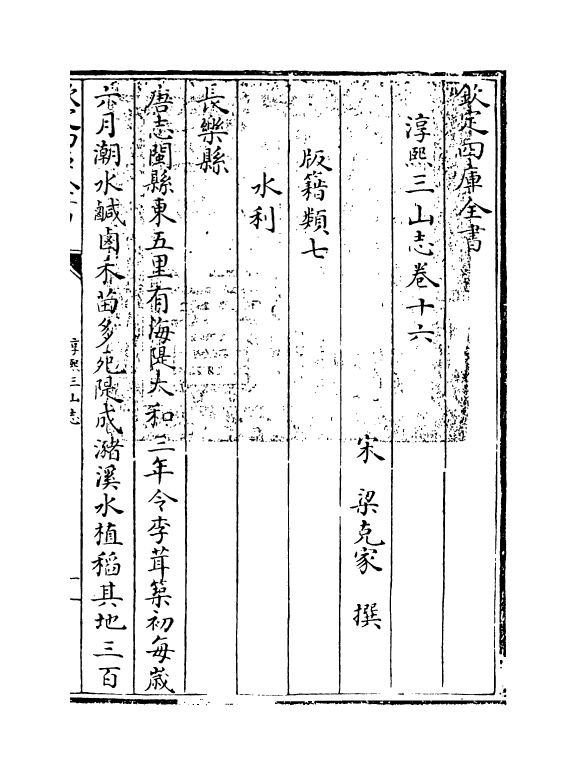 欽定四庫全書
淳熙三山志卷十六
宋 梁克家 撰
版籍類七
水利
長樂縣
唐志閩縣東五里有海隄大和三年令李茸築初每歲
六月潮水鹹鹵禾苗多死隄成瀦溪水植稻其地三百
淳熙三山志
一